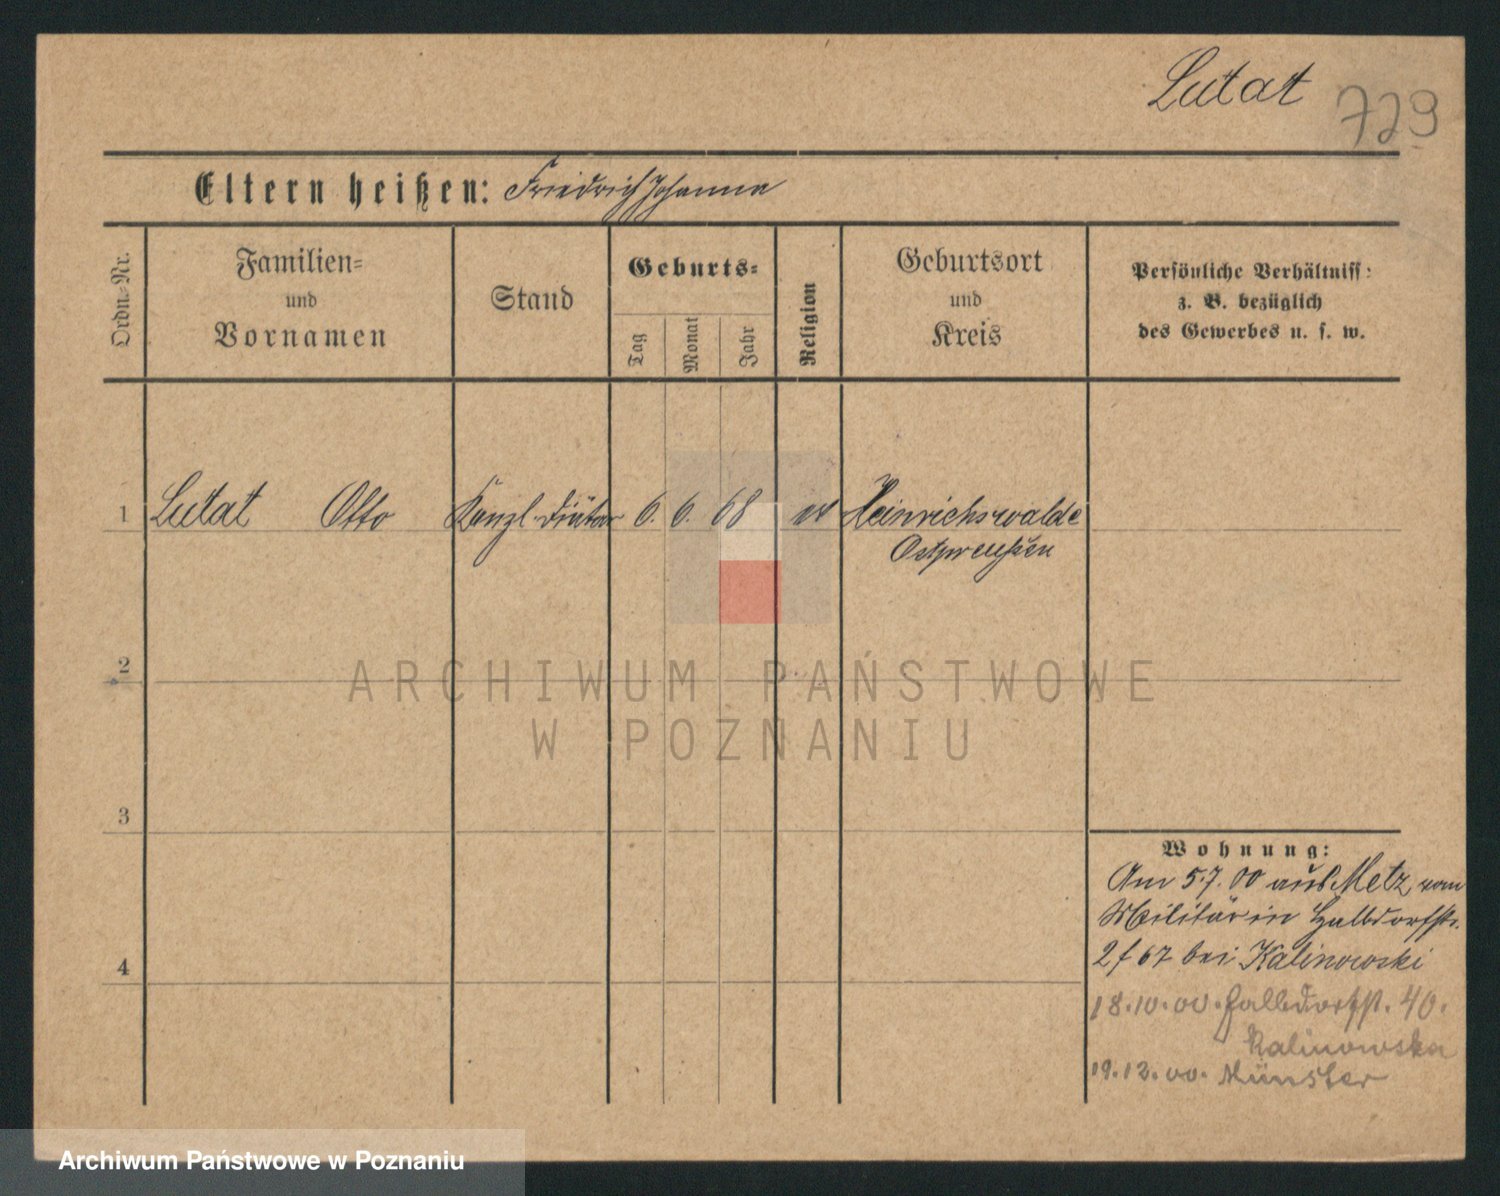 Lutat 729
Eltern heißen: Friedrich Johanna
Ordn.-Nr.
Familien-
und
Vornamen
Stand
Geburts-
Tag
Monat
Jahr
Religion
Geburtsort
und
Kreis
Persönliche Verhältniss:
z. B. bezüglich
des Gewerbes u. s. w.
1 Lutat Otto Kanzl. Diätar 6. 6. 68 ev Heinrichswalde
Ostpreußen
2
3
4
Wohnung:
Am 5.7.00 aus Metz, vom
Militär in Halbdorfstr.
2 f 67 bei Kalinowski
18.10.00. Halbdorfst. 40.
Kalinowska
19.12.00. Münster
ARCHIWUM PAŃSTWOWE
W POZNANIU
Archiwum Państwowe w Poznaniu